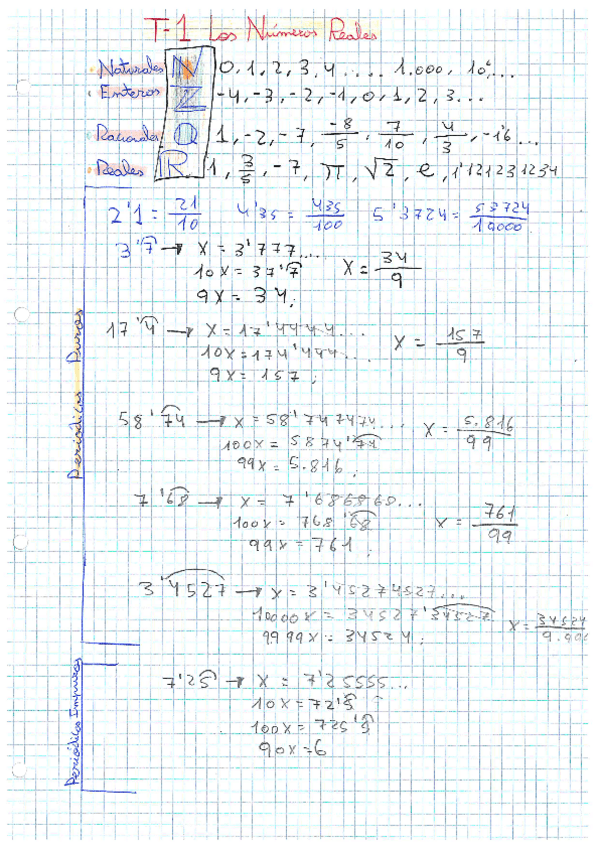 T-1 Los Números Reales
Naturales N 0, 1, 2, 3, 4 ..... 1.000, 10⁶...
Enteros Z -4, -3, -2, -1, 0, 1, 2, 3...
Racionales Q 1, -2, -7, -8/5, 7/10, 4/3, -1'6...
Reales R 1, 3/5, -7, π, √2, e, 1'121231234
2'1 = 21/10 4'35 = 435/100 5'3724 = 53724/10000
Periódicos Puros
3'7 → X = 3'777....
10X = 37'7 X = 34/9
9X = 34;
17'4 → X = 17'4444...
10X = 174'444... X = 157/9
9X = 157;
58'74 → X = 58'747474.... X = 5.816/99
100X = 5874'74
99X = 5.816;
7'68 → X = 7'686868...
100X = 768'68 X = 761/99
99X = 761;
3'4527 → X = 3'45274527...
10000X = 34527'34527 X = 34524/9.99
9999X = 34524;
Periódicos Impuros
7'25 → X = 7'25555...
10X = 72'5
100X = 725'5
90X = 6